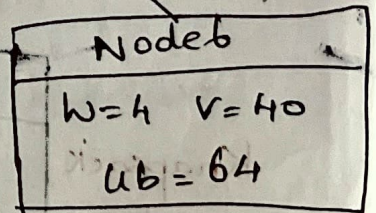 Node6
W=4 V=40
ub = 64